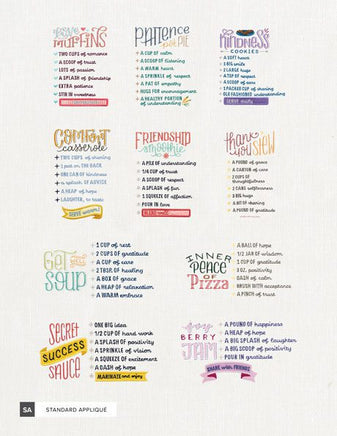 Love
MUFFINS
TWO CUPS of romance
A SCOOP of trust
LOTS of passion
A SPLASH of friendship
EXTRA patience
STIR IN sweetness
PATIENCE
pot PIE
A CUP of calm
A SCOOP of listening
A WARM heart
A SPRINKLE of respect
A PAT of empathy
HUGS FOR encouragement
A HEALTHY PORTION
of understanding
KINDNESS
COOKIES
A SOFT heart
2 BIG smiles
2 LARGE hugs
A TSP of respect
4 SCOOPS of care
1 PACKED CUP of sharing
OLD FASHIONED understanding
SERVE daily
COMFORT
casserole
TWO CUPS of sharing
1 pat on THE BACK
ONE CAN OF kindness
a SPLASH of ADVICE
A HEAP OF hope
LAUGHTER, to taste
SERVE warm!
FRIENDSHIP
smoothie
A PILE OF understanding
1/4 CUP OF trust
A SCOOP OF respect
A SPLASH of fun
1 SQUEEZE of affection
POUR IN love
thank you
STEW
A POUND OF grace
A CARTON OF care
2 CUPS OF
thoughtfulness
2 CANS selflessness
3 BIG hugs
A POUND OF gratitude
GET
well
SOUP
1 CUP OF rest
2 CUPS OF gratitude
A CUP of care
2 TBSP. OF healing
A BOX OF grace
A HEAP OF relaxation
A WARM embrace
INNER
PEACE
OF
PIZZA
A BALL OF hope
1/2 JAR OF wisdom
1 CUP OF gratitude
3 OZ. positivity
DASH OF calm
BRUSH WITH acceptance
A PINCH OF trust
SECRET
SUCCESS
SAUCE
ONE BIG idea
1/2 CUP OF hard work
A SPLASH OF positivity
A SPRINKLE OF vision
A SQUEEZE OF excitement
A DASH OF hope
MARINATE and enjoy
JOY
BERRY
JAM
A POUND OF happiness
A HEAP OF hope
A BIG SPLASH OF laughter
A BIG SCOOP OF positivity
POUR IN gratitude
SHARE WITH FRIENDS
SA
STANDARD APPLIQUÉ